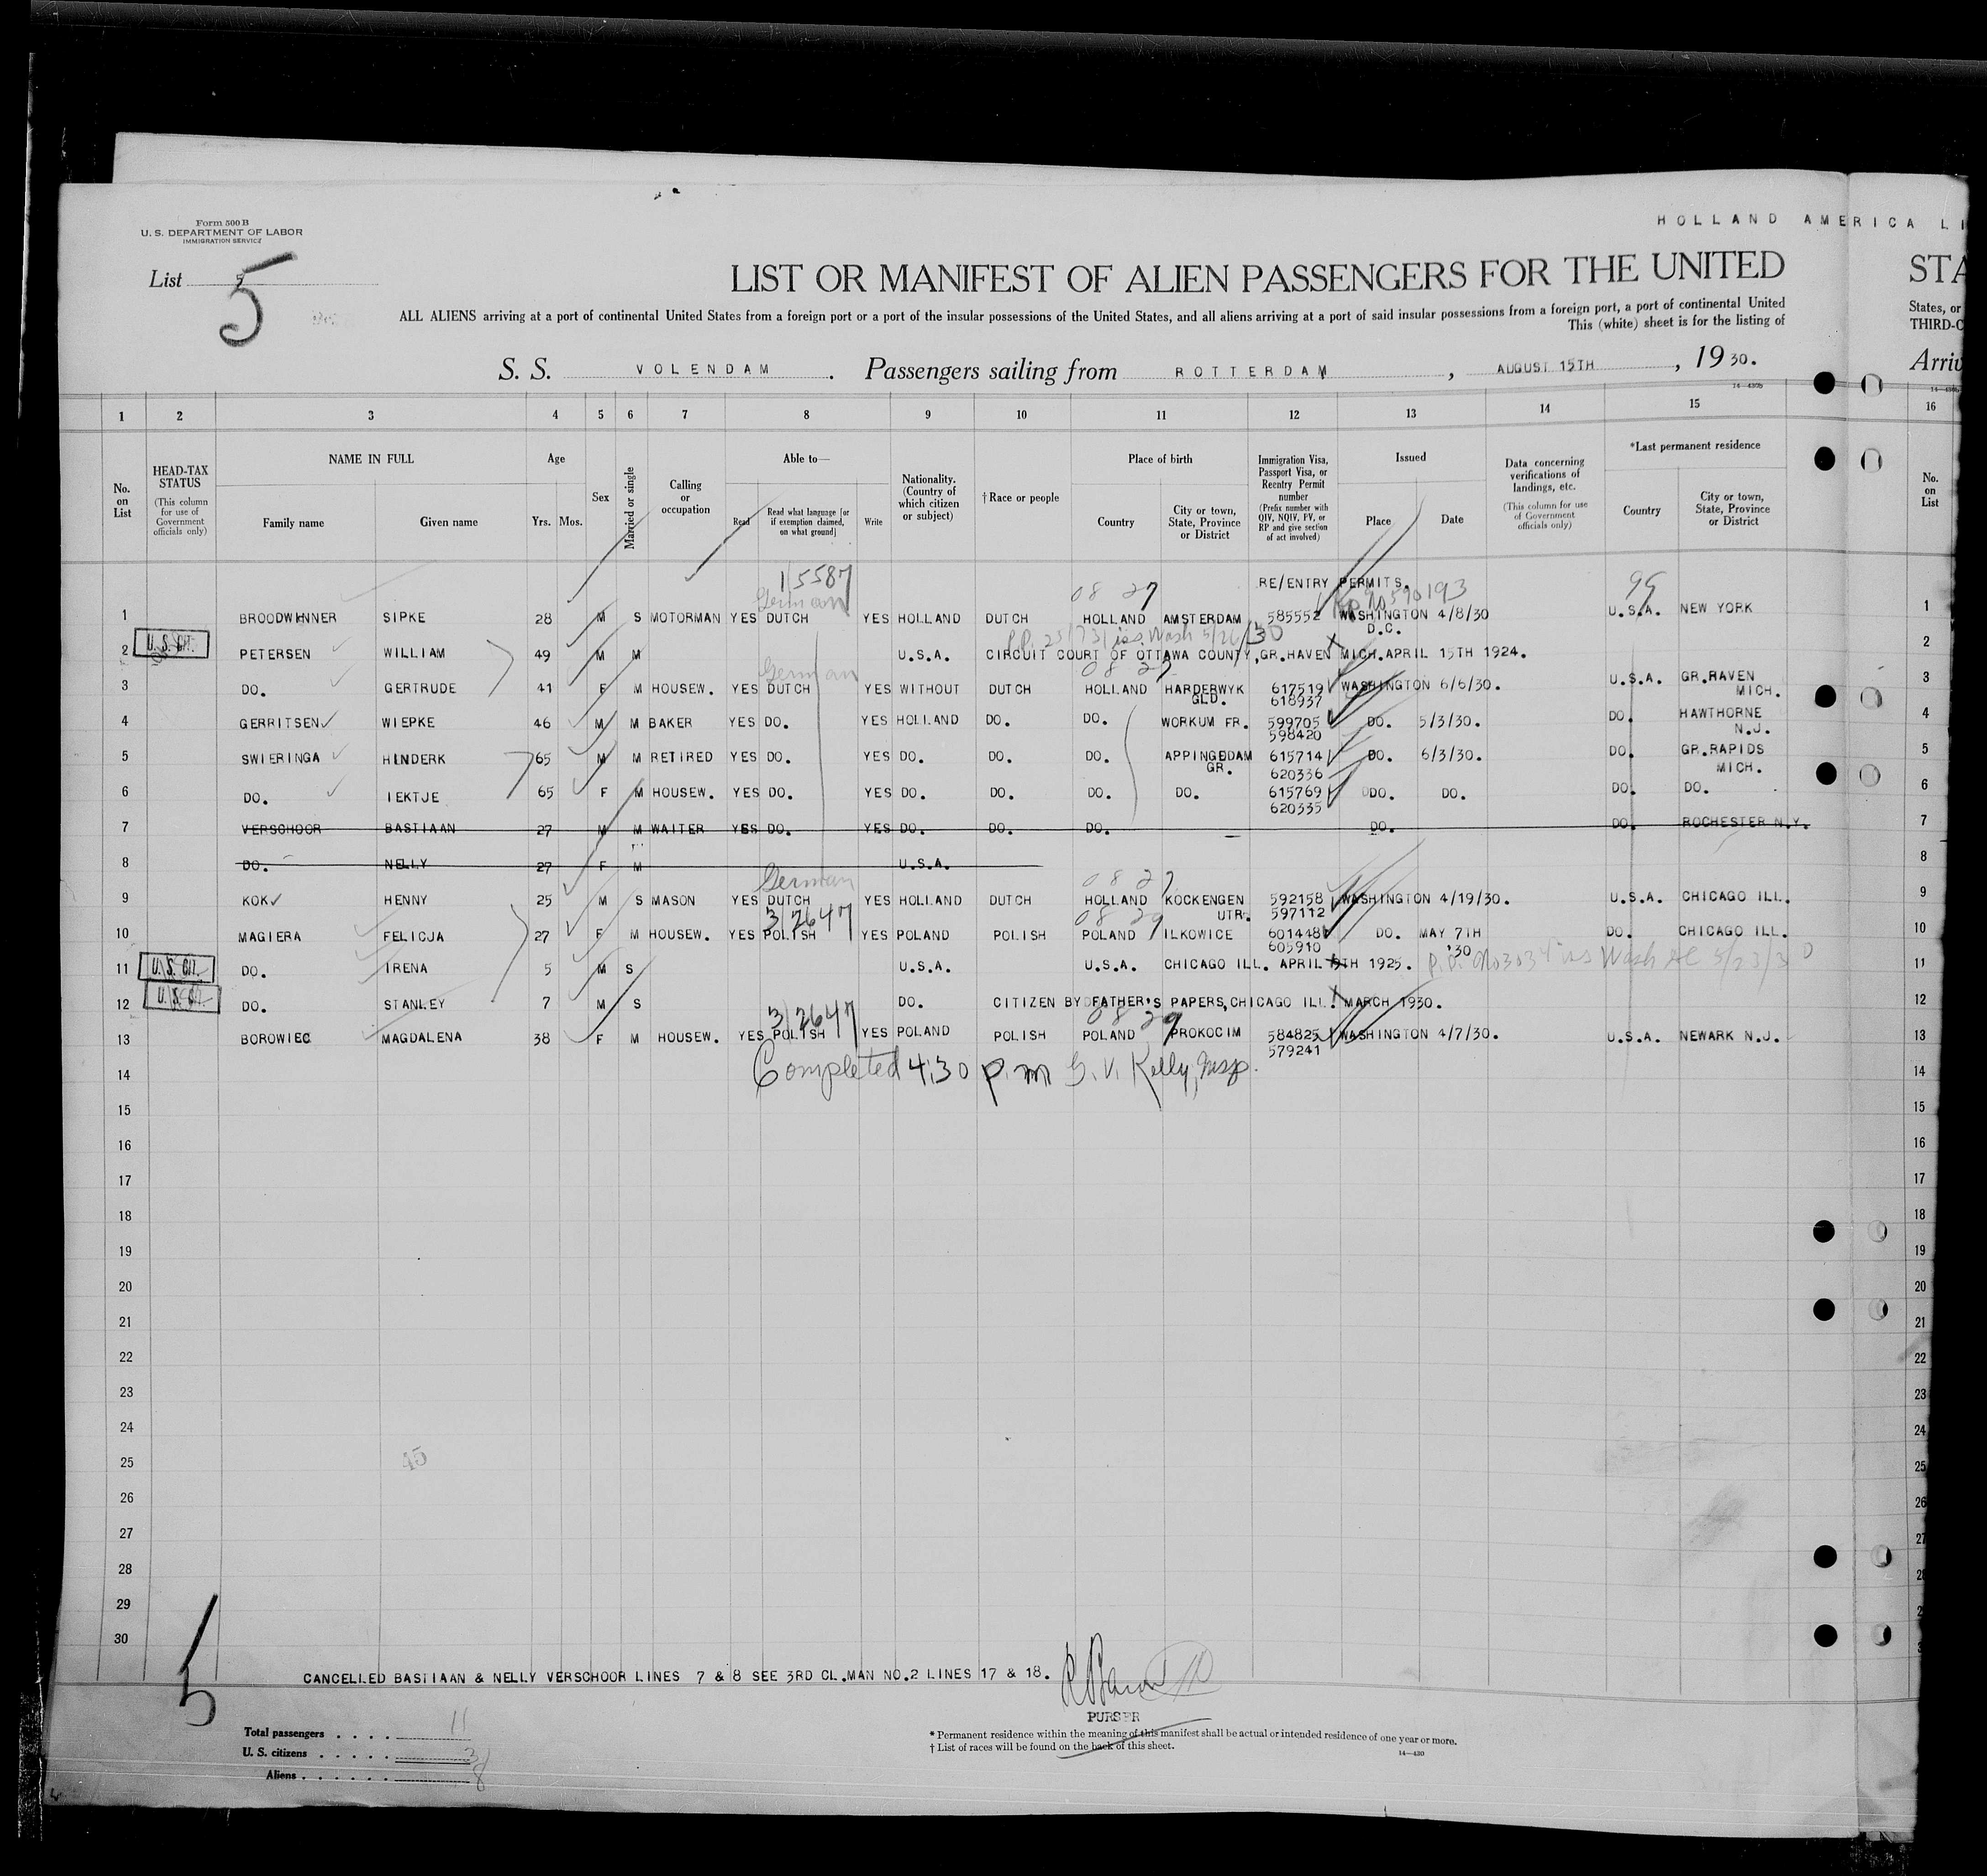 Form 500 B
U. S. DEPARTMENT OF LABOR
IMMIGRATION SERVICE
HOLLAND AMERICA LI
List 5
5
LIST OR MANIFEST OF ALIEN PASSENGERS FOR THE UNITED
STA
ALL ALIENS arriving at a port of continental United States from a foreign port or a port of the insular possessions of the United States, and all aliens arriving at a port of said insular possessions from a foreign port, a port of continental United
States, or
This (white) sheet is for the listing of
THIRD-C
S. S. VOLENDAM. Passengers sailing from ROTTERDAM, AUGUST 15TH, 1930.
Arriv
1 2 3 4 5 6 7 8 9 10 11 12 13 14 15 16
No. on List
HEAD-TAX STATUS (This column for use of Government officials only)
NAME IN FULL Family name Given name
Age Yrs. Mos.
Sex
Married or single
Calling or occupation
Able to— Read Read what language [or if exemption claimed, on what ground] Write
Nationality. (Country of which citizen or subject)
† Race or people
Place of birth Country City or town, State, Province or District
Immigration Visa, Passport Visa, or Reentry Permit number (Prefix number with QIV, NQIV, PV, or RP and give section of act involved)
Issued Place Date
Data concerning verifications of landings, etc. (This column for use of Government officials only)
*Last permanent residence Country City or town, State, Province or District
No. on List
15587 08 27 RE/ENTRY PERMITS. 99
German
1 BROODWINNER SIPKE 28 M S MOTORMAN YES DUTCH YES HOLLAND DUTCH HOLLAND AMSTERDAM 585552 WASHINGTON 4/8/30 U.S.A. NEW YORK 1
D.C.
U.S. CIT.
2 PETERSEN WILLIAM 49 M M U.S.A. CIRCUIT COURT OF OTTAWA COUNTY, GR.HAVEN MICH. APRIL 15TH 1924. 2
German 08 27
3 DO. GERTRUDE 41 F M HOUSEW. YES DUTCH YES WITHOUT DUTCH HOLLAND HARDERWYK 617519 WASHINGTON 6/6/30. U.S.A. GR.RAVEN 3
GLD. 618937 MICH.
4 GERRITSEN WIEPKE 46 M M BAKER YES DO. YES HOLLAND DO. DO. WORKUM FR. 599705 DO. 5/3/30. DO. HAWTHORNE 4
598420 N.J.
5 SWIERINGA HINDERK 65 M M RETIRED YES DO. YES DO. DO. DO. APPINGEDAM 615714 DO. 6/3/30. DO. GR.RAPIDS 5
GR. 620336 MICH.
6 DO. IEKTJE 65 F M HOUSEW. YES DO. YES DO. DO. DO. DO. 615769 DO. DO. DO. DO. 6
620335
7 VERSCHOOR BASTIAAN 27 M M WAITER YES DO. YES DO. DO. DO. DO. DO. ROCHESTER N.Y. 7
8 DO. NELLY 27 F M U.S.A. 8
German 08 27
9 KOK HENNY 25 M S MASON YES DUTCH YES HOLLAND DUTCH HOLLAND KOCKENGEN 592158 WASHINGTON 4/19/30. U.S.A. CHICAGO ILL. 9
UTR. 597112
3/2647 08 29
10 MAGIERA FELICJA 27 F M HOUSEW. YES POLISH YES POLAND POLISH POLAND ILKOWICE 601448 DO. MAY 7TH DO. CHICAGO ILL. 10
605910 '30
U.S. CIT.
11 DO. IRENA 5 M S U.S.A. U.S.A. CHICAGO ILL. APRIL 5TH 1925. 11
U.S. CIT.
12 DO. STANLEY 7 M S DO. CITIZEN BY FATHER'S PAPERS, CHICAGO ILL. MARCH 1930. 12
3/2647 08 29
13 BOROWIEC MAGDALENA 38 F M HOUSEW. YES POLISH YES POLAND POLISH POLAND PROKOCIM 584825 WASHINGTON 4/7/30. U.S.A. NEWARK N.J. 13
579241
Completed 4:30 p.m G. V. Kelly, Insp.
14 14
15 15
16 16
17 17
18 18
19 19
20 20
21 21
22 22
23 23
24 24
45
25 25
26 26
27 27
28 28
29
30
5
CANCELLED BASTIAAN & NELLY VERSCHOOR LINES 7 & 8 SEE 3RD CL.MAN NO.2 LINES 17 & 18.
PURSER
Total passengers 11
U. S. citizens 3
Aliens 8
* Permanent residence within the meaning of this manifest shall be actual or intended residence of one year or more.
† List of races will be found on the back of this sheet.
14—430